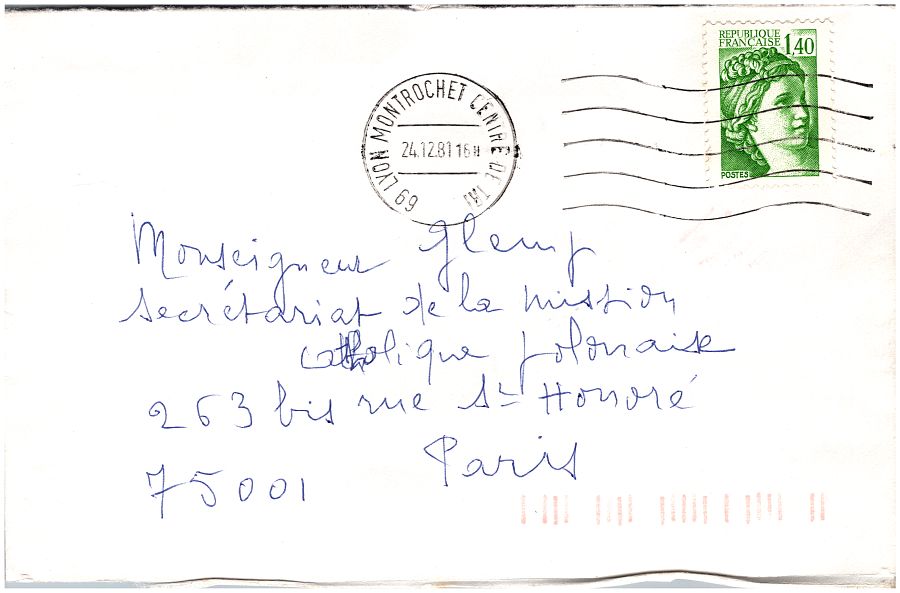 REPUBLIQUE
FRANÇAISE 1,40
POSTES
69 LYON MONTROCHET CENTRE DE TRI
24.12.81 16H
Monseigneur Glemp
secrétariat de la mission
catholique polonaise
263 bis rue St Honoré
75001 Paris